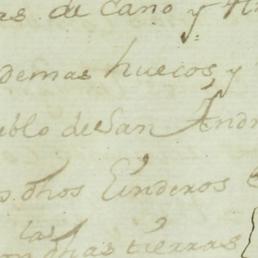 as de Cano y
demas huecos, y
blo de San Andr
dhos Linderos
las
on dhas tierras